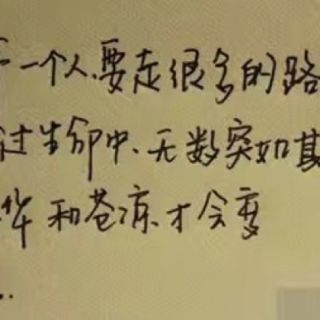 一个人.要走很多的路
过生命中.无数突如其
华和苍凉.才会变
..